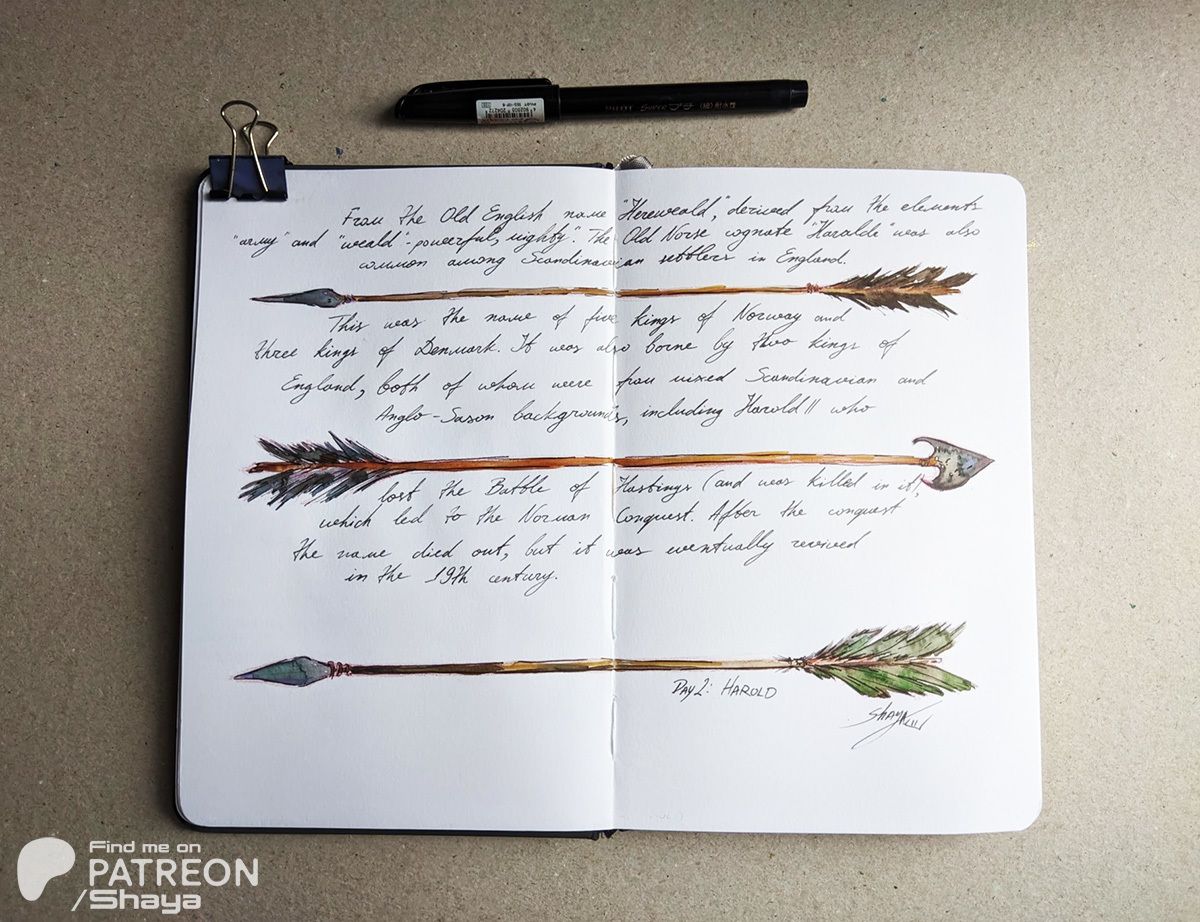 PILOT SUPER プチ (細) 耐水性
From the Old English name "Hereweald," derived from the elements
"army" and "weald" - powerful, mighty". The Old Norse cognate "Haraldr" was also
common among Scandinavian settlers in England.
This was the name of five kings of Norway and
three kings of Denmark. It was also borne by two kings of
England, both of whom were from mixed Scandinavian and
Anglo-Saxon backgrounds, including Harold II who
lost the Battle of Hastings (and was killed in it),
which led to the Norman Conquest. After the conquest
the name died out, but it was eventually revived
in the 19th century.
DAY 2: HAROLD
Shaya
Find me on
PATREON
/Shaya